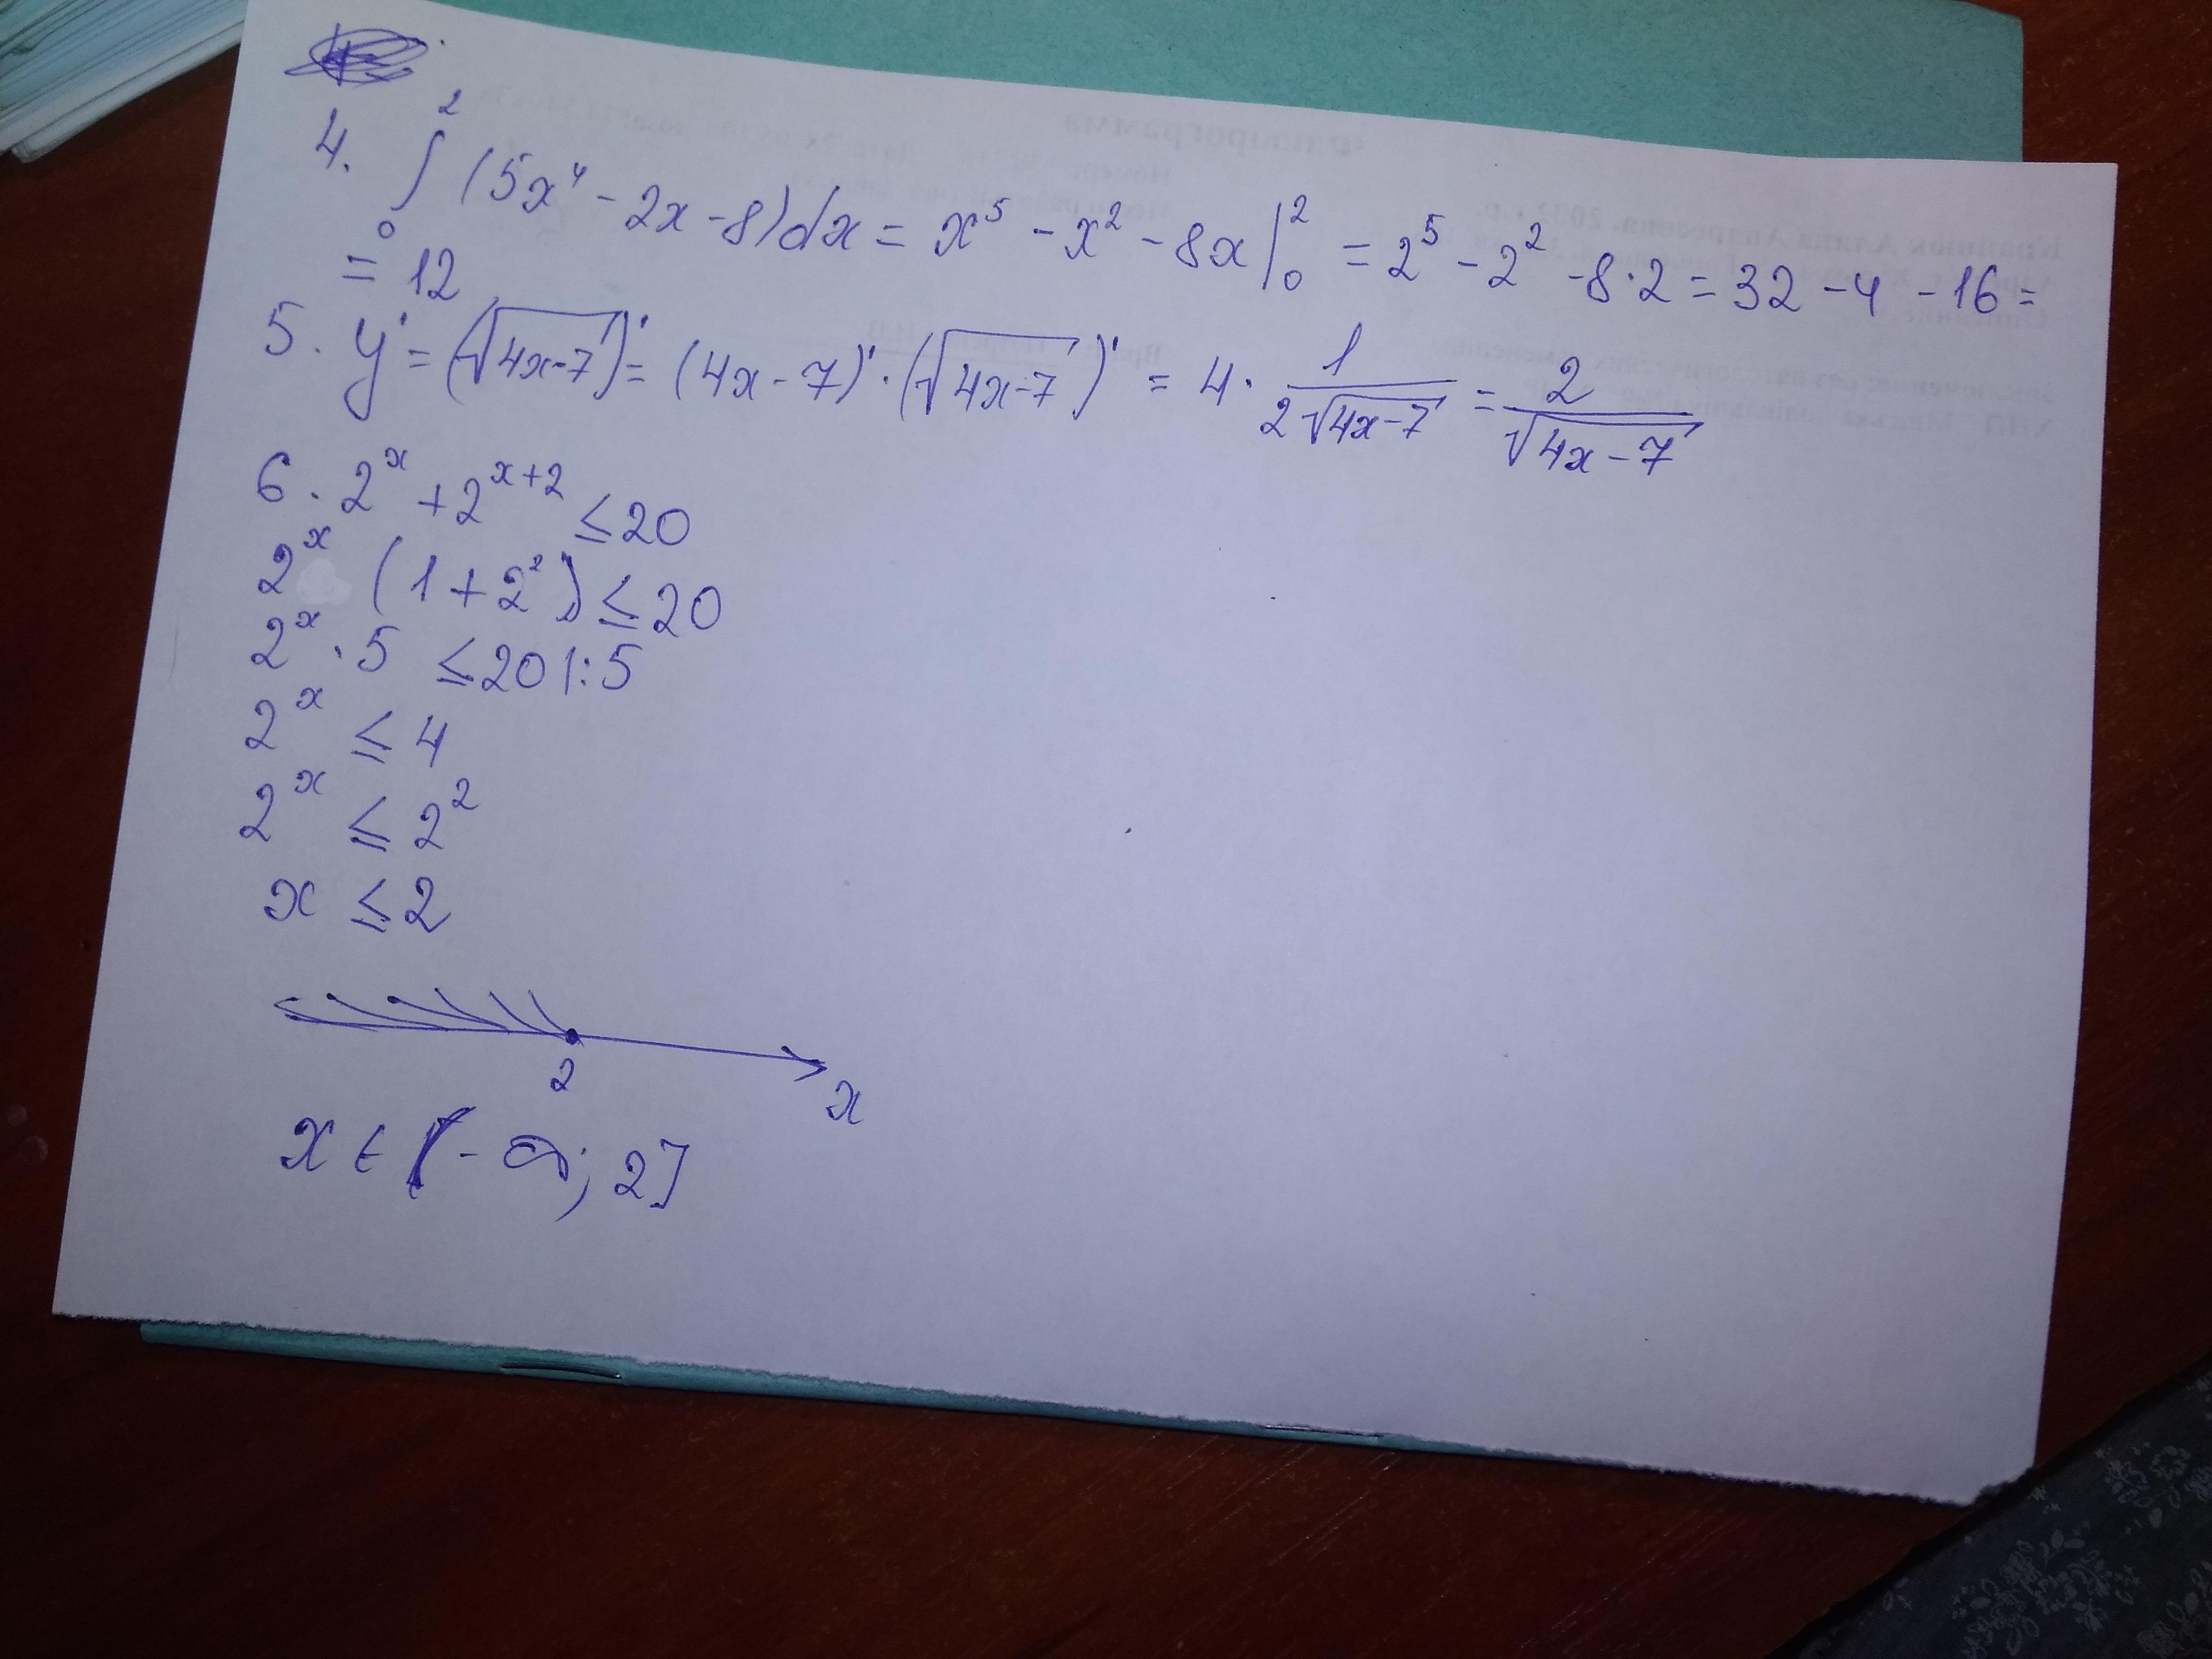 4. ∫₀² (5x⁴ - 2x - 8)dx = x⁵ - x² - 8x |₀² = 2⁵ - 2² - 8·2 = 32 - 4 - 16 =
= 12
5. y' = (√(4x-7))' = (4x - 7)' · (√(4x-7))' = 4 · 1/(2√(4x-7)) = 2/√(4x-7)
6. 2ˣ + 2ˣ⁺² ≤ 20
2ˣ (1 + 2²) ≤ 20
2ˣ · 5 ≤ 20 |:5
2ˣ ≤ 4
2ˣ ≤ 2²
x ≤ 2
2
x
x ∈ (-∞; 2]